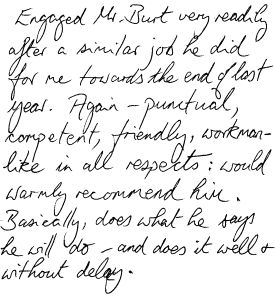 Engaged Mr. Burt very readily
after a similar job he did
for me towards the end of last
year. Again – punctual,
competent, friendly, workman-
like in all respects: would
warmly recommend him.
Basically, does what he says
he will do – and does it well &
without delay.